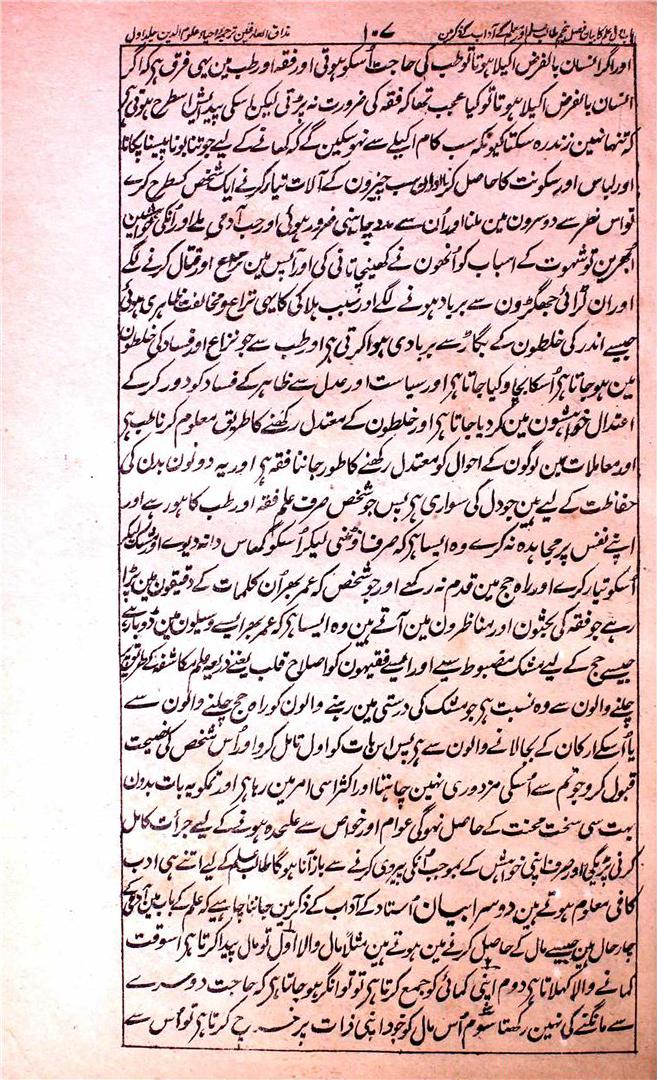 باب اول علم کا بیان فصل پنجم طالب علم اور معلم کے آداب کے ذکر میں ۱۰۷ مذاق العارفین ترجمہ احیاء علوم الدین جلد اول
اور اگر انسان بالفرض اکیلا ہوتا تو طب کی حاجت اُسکو ہوتی اور فقہ اور طب مین یہی فرق ہی کہ اگر
انسان بالفرض اکیلا ہوتا تو کیا عجب تھا کہ فقہ کی ضرورت نہ پڑتی لیکن اسکی پیدایش اسطرح ہوئی ہی
کہ تنہا نہین زندہ رہ سکتا کیونکہ سب کام اکیلے سے نہو سکین گے کہ کھانے کے لیے جوتنا بونا پیسنا پکانا
اور لباس اور سکونت کا حاصل کرنا اور ان سب چیزون کے آلات تیار کرنے ایک شخص کسطرح کرے
تو اس نظر سے دوسرون مین ملنا اور اُن سے مدد چاہنی ضرور ہوئی اور جب آدمی ملے اور اُنکی خواہشین
اُبھرین تو شہوت کے اسباب کو اُنھون نے کھینچا تانی کی اور آپس مین نزاع اور قتال کرنے لگے
اور ان لڑائی جھگڑون سے برباد ہونے لگے اور سبب ہلاکی کا یہی نزاع و مخالفت ظاہری ہوئی
جیسے اندر کی خلطون کے بگاڑ سے بربادی ہوا کرتی ہی اور طب سے جو نزاع اور فساد کی خلطون
مین ہو جاتا ہی اُسکا بچاو کیا جاتا ہی اور سیاست اور عدل سے ظاہر کے فساد کو دور کر کے
اعتدال خواہشون مین کر دیا جاتا ہی اور خلطون کے معتدل رکھنے کا طریق معلوم کرنا طب ہی
اور معاملات مین لوگون کے احوال کو معتدل رکھنے کا طور جاننا فقہ ہی اور یہ دونون بدن کی
حفاظت کے لیے ہین جو دل کی سواری ہی پس جو شخص صرف علم فقہ اور طب کا ہو رہے اور
اپنے نفس پر مجاہدہ نہ کرے وہ ایسا ہی کہ صرف اونٹنی لیکر اُسکو گھاس دانہ دیوے اور مشک لیکر
اُسکو تیار کرے اور راہ حج مین قدم نہ رکھے اور جو شخص کہ عمر بھر اُن کلمات کے دقیقون مین پڑا
رہے جو فقہ کی بحثون اور مناظرون مین آتے ہین وہ ایسا ہی کہ عمر بھر ایسے وسیلون مین ڈوبا رہے
جیسے حج کے لیے مشک مضبوط سیے اور ایسے فقیہون کو اصلاح قلب یعنے ذریعہ علم مکاشفہ کے طریق پر
چلنے والون سے وہ نسبت ہی جو مشک کی درستی مین رہنے والون کو راہ حج چلنے والون سے
یا اُسکے ارکان کے بجا لانے والون سے ہی پس اس بات کو اول تامل کرو اور اُس شخص کی نصیحت
قبول کرو جو تم سے اُسکی مزدوری نہین چاہتا اور اکثر اسی امر مین رہا ہی اور تمکو یہ بات بدون
بہت سی سخت محنت کے حاصل نہوگی عوام اور خواص سے علٰحدہ ہونے کے لیے جرأت کامل
کرنی پڑیگی اور صرف اپنی خواہش کے بموجب اُنکی پیروی کرنے سے باز آنا ہوگا طالب علم کے لیے اتنے ہی ادب
کافی معلوم ہوتے ہین دوسرا بیان اُستاد کے آداب کے ذکر مین جاننا چاہیے کہ علم کے باب مین آدمی کے
چار حال ہین جیسے مال کے حاصل کرنے مین ہوتے ہین مثلاً مال والا اول تو مال پیدا کرتا ہی اسوقت
کمانے والا کہلاتا ہی دوم اپنی کمائی کو جمع کرتا ہی تو تو انگر ہو جاتا ہی کہ حاجت دوسرے
سے مانگنے کی نہین رکھتا سوم اُس مال کو خود اپنی ذات پر خرچ کرتا ہی تو اُس سے